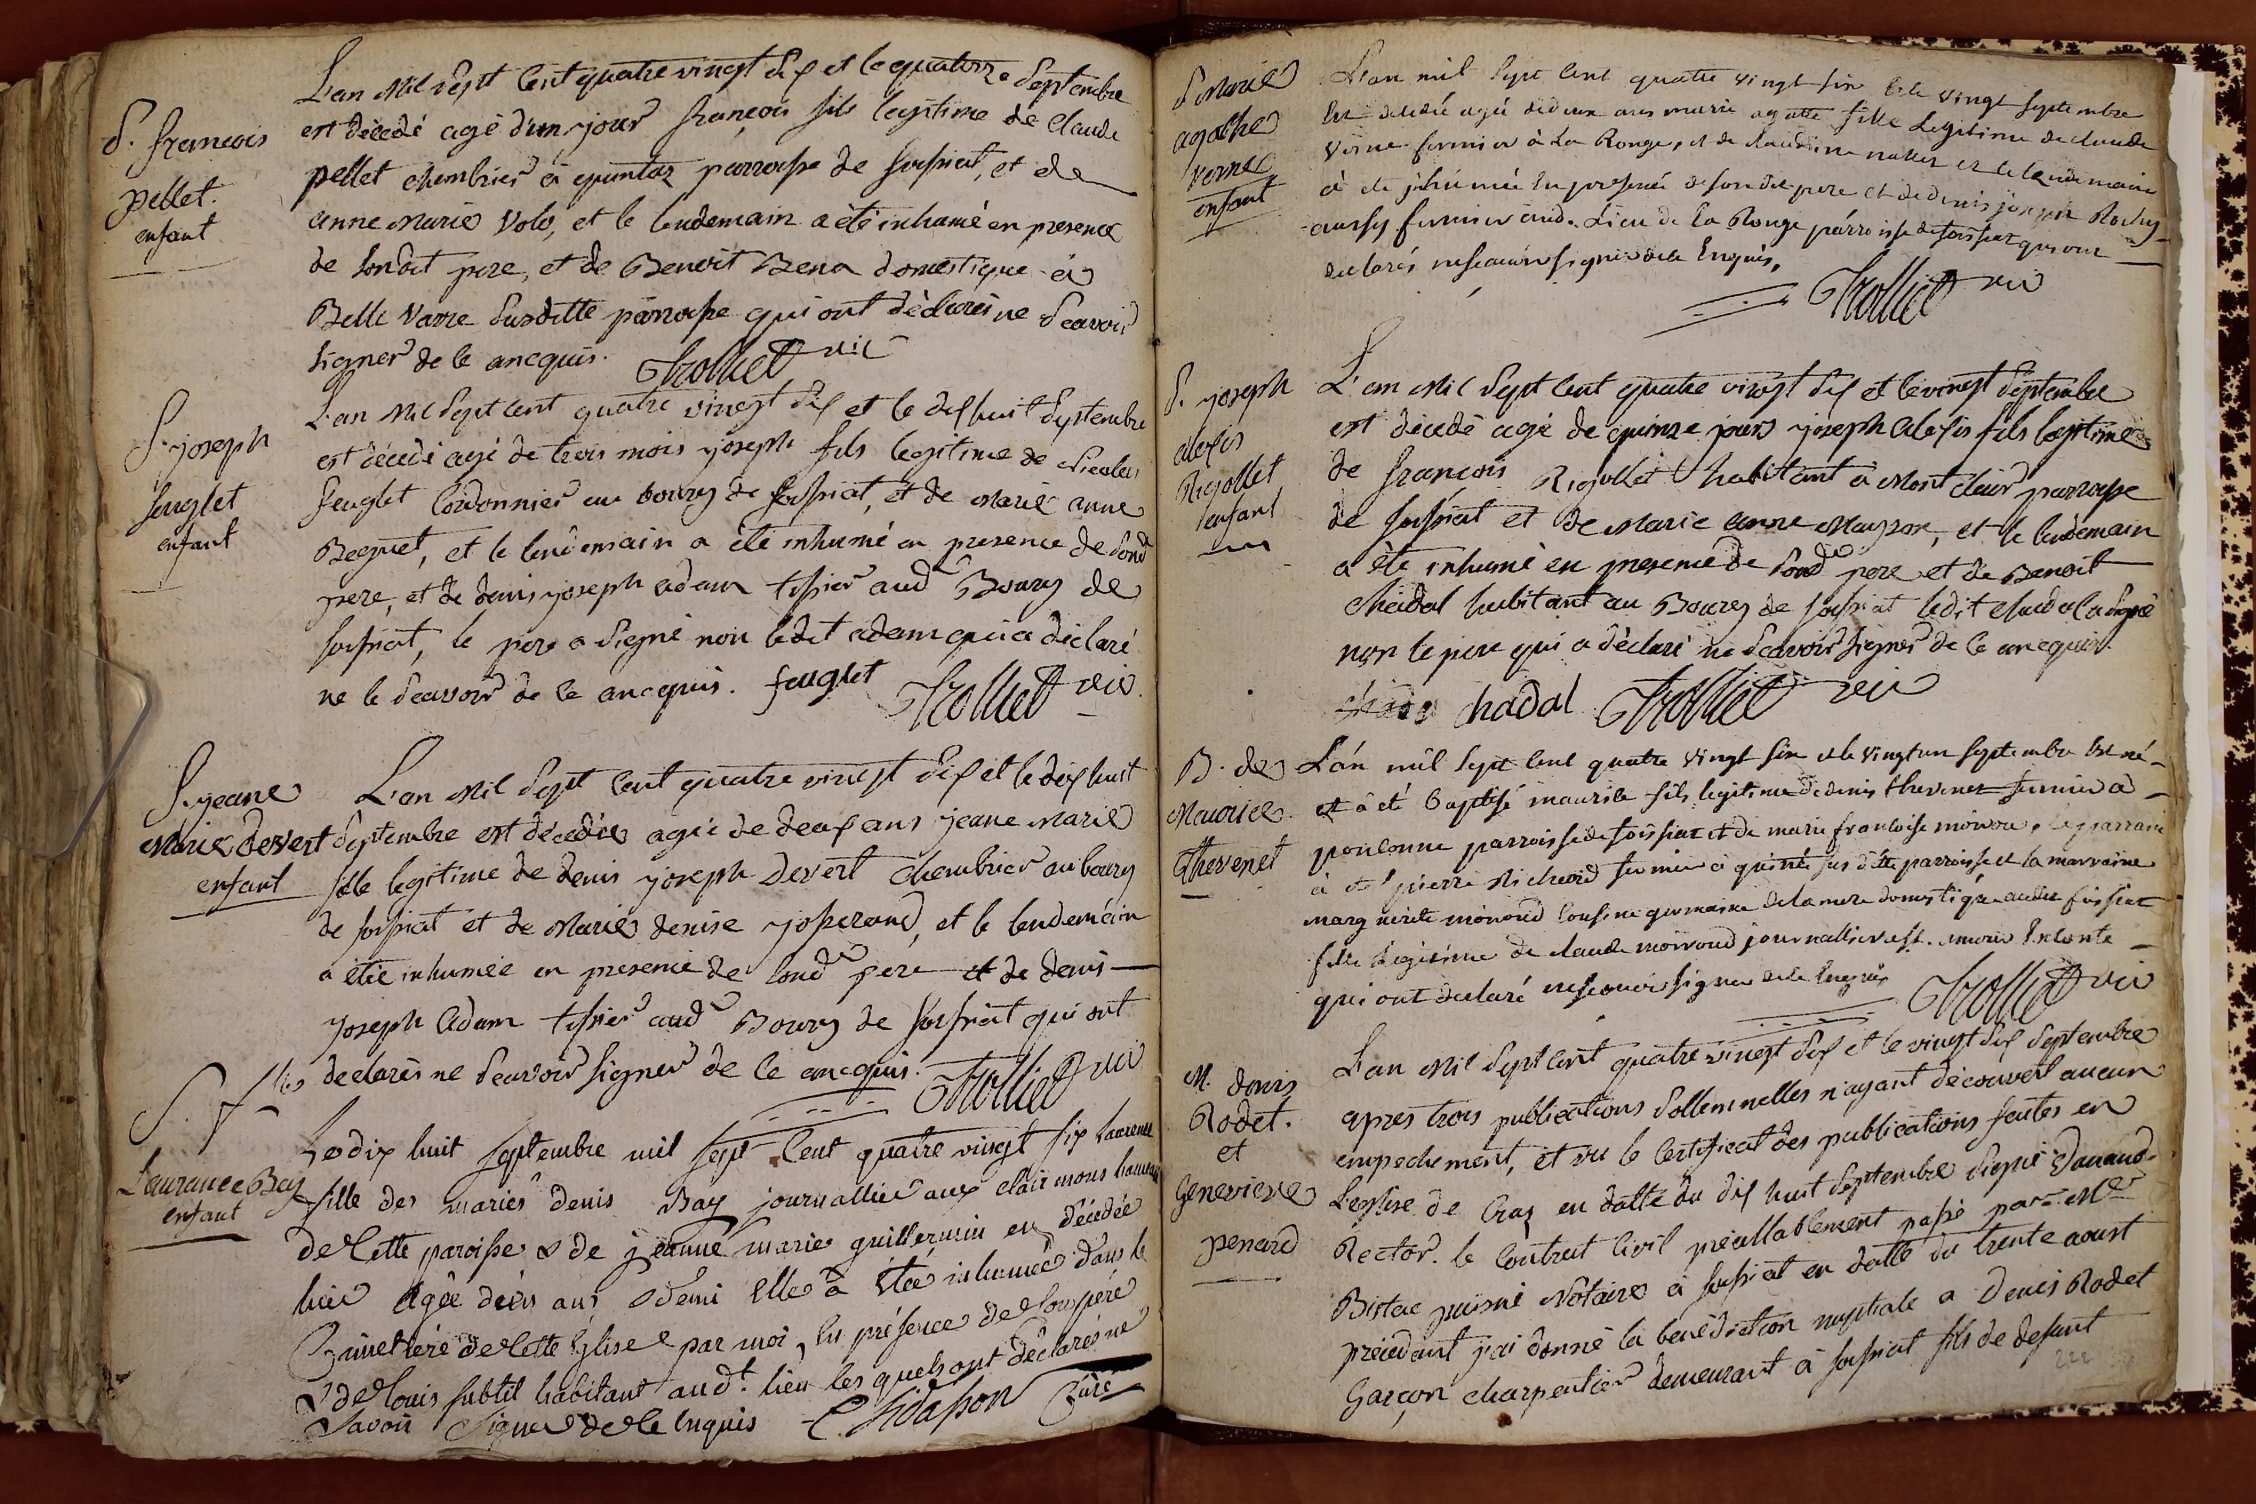 S. françois
pellet.
enfant
L'an Mil sept cent quatre vingt dix et le quatorze Septembre
est décedé agé d'un jour françois fils legitime de Claude
pellet chembrier à quintaz parroisse de foissiat, et de
anne Marie Volo, et le lendemain a été inhumé en presence
de sondit pere, et de Benoit Bena domestique à
Belle Varre susditte parroisse qui ont déclarés ne scavoir
signer de ce ancquis. Trolliet vic
S. joseph
feuglet
enfant
L'an Mil Sept cent quatre vingt dix et le dix huit Septembre
est décedé agé de trois mois joseph fils legitime de Nicolas
feuglet Cordonnier au bourg de foissiat, et de Marie anne
Beguet, et le lendemain a été inhumé en presence de sond
pere, et de denis joseph adam tissier aud Bourg de
foissiat, le pere a signé non ledit adam qui a déclaré
ne le scavoir de ce ancquis. feuglet Trolliet vic.
S. jeane
Marie devert
enfant
L'an Mil Sept cent quatre vingt dix et le dix huit
Septembre est décedée agée de deux ans jeane Marie
fille legitime de denis joseph devert Chembrier au bourg
de foissiat et de Marie denise josserand, et le lendemain
a étée inhumée en presence de sond pere et de denis
joseph Adam tissier aud Bourg de foissiat qui ont
declarés ne scavoir signer de ce ancquis. Trolliet vic
S.
Laurance Bay
enfant
Le dix huit septembre mil sept cent quatre vingt dix Laurence
fille des mariés denis Bay journallier aux clairmons hameau
de Cette paroisse & de jeanne marie guillermin en décédée
hier Agée d'un ans & demi Elle a Etée inhumée dans le
Cimettiére de Cette Eglise par moi, En présence de son pére
& de Louis subtil habitant aud.t lieu les quels ont déclarés ne
Savoir Signer de Ce Enquis C. Sidasson Curé
S Marie
agathe
verne
enfant
L'an mil sept cent quatre vingt six et le vingt septembre
est décédée agée de deux ans marie agatte fille legitime de claude
verne fermier à La Ronge, et de claudine et le lendemain
à été inhumée en presence de son dit pere et de denis joseph
aussy fermier aud. Lieu de La Ronge parroisse de foissiat qui ont
declarés ne scavoir signer de ce Enquis, Trolliet vic
S. joseph
alexis
Rigollet
enfant
L'an Mil Sept cent quatre vingt dix et le vingt Septembre
est décedé agé de quinze jours joseph alexis fils legitime
de françois Rigollet habitant à Mont clair parroisse
de foissiat et de Marie anne Mayson, et le lendemain
a été inhumé en presence de sond pere et de Benoit
Chadal habitant au Bourg de foissiat ledit chadal a signé
non le pere qui a déclaré ne scavoir signer de ce ancquis.
chadal Trolliet vic
B. de
Maurice
Thevenet
L'an mil sept cent quatre vingt six et le vingt un septembre est né
et a été baptisé maurice fils legitime de denis thevenet fermier a
poulonne parroisse de foissiat et de marie francoise moiroud, le parrain
à été pierre Richerd fermier à quinté sus ditte parroisse et la marraine
marguerite moiroud Cousine germaine de la mere domestique audit foissiat
fille Legitime de claude moiroud journallier
qui ont declaré ne scavoir signer de ce Enquis Trolliet vic
M. denis
Rodet.
et
Genevieve
penard
L'an Mil Sept cent quatre vingt dix et le vingt dix Septembre
apres trois publications sollemnelles n'ayant découvert aucun
empechement, et vu le Certificat des publications faites en
L'eglise de Cras en datte du dix huit Septembre Signé
Rector. le Contrat Civil préallablement passé par M.e
Bistac puisné Notaire à foissiat en datte du trente aoust
précédent j'ai donné la bénédiction nuptiale a Denis Rodet
Garçon charpentier demeurant à foissiat fils de défunt